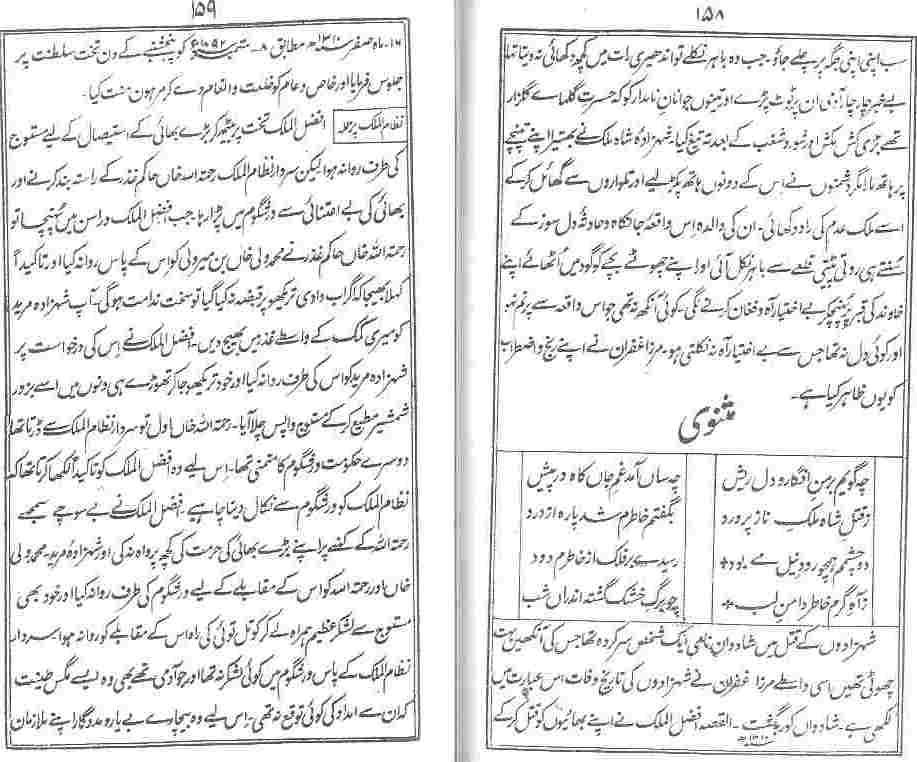 ۱۵۸
سب اپنی اپنی جگہ پر چلے جاؤ۔ جب وہ باہر نکلے تو اندھیری رات میں کچھ دکھائی نہ دیتا تھا
بے خبر چار پانچ آدمی ان پر ٹوٹ پڑے اور تینوں جوانانِ نامدار کو کہ حسرتِ گلہائے گلزار
تھے بڑی کش مکش و شور و شغب کے بعد تہِ تیغ کیا۔ شہزادہ شاہ ملک نے بھتیرا اپنے تپنچے
پر ہاتھ مارا مگر دشمنوں نے اس کے دونوں ہاتھ پکڑ لیے اور تلواروں سے گھائل کر کے
اسے ملک عدم کی راہ دکھائی۔ ان کی والدہ اس واقعۂ جانکاہ و حادثۂ دل سوز کے
سنتے ہی روتی پیٹتی قلعے سے باہر نکل آئی اور اپنے چھوٹے بچے کو گود میں اُٹھائے اپنے
خاوند کی قبر پر پہنچ کر بے اختیار آہ و فغان کرنے لگی۔ کوئی آنکھ نہ تھی جو اس واقعہ سے پرنم نہ ہو
اور کوئی دل نہ تھا جس سے بے اختیار آہ نہ نکلتی ہو۔ مرزا غفران نے اپنے رنج و اضطراب
کو یوں ظاہر کیا ہے۔
مثنوی
چہ گویم بر من افگار و دل ریش چہ ساں آمد غمِ جاں کاہ در پیش
ز قتل شاہ ملکِ ناز پرورد بگفتم خاطرم شد پارہ از درد
دو چشمم ہمچو رودِ نیل مے بود رسیدے بر فلک از خاطرم دود
ز آہِ گرم خاطر دامنِ لب چو برگِ خشک گشتہ اندراں شب
شہزادوں کے قتل میں شادوان نامی ایک شخص سرکردہ تھا جس کی آنکھیں بہت
چھوٹی تھیں اسی واسطے مرزا غفران نے شہزادوں کی تاریخ وفات اس عبارت میں
لکھی ہے۔ شادوان کور بگشت۔ القصہ افضل الملک نے اپنے بھائیوں کو قتل کر کے
۱۳۱۰ھ
۱۵۹
۱۶۔ ماہ صفر سنہ ۱۳۱۰ھ مطابق ۸۔ ستمبر سنہ ۱۸۹۲ء کو پنجشنبے کے دن تخت سلطنت پر
جلوس فرمایا اور خاص و عام کو خلعت و انعام دے کر مرہون منت کیا۔
نظام الملک پر حملہ افضل الملک تخت پر بیٹھ کر بڑے بھائی کے استیصال کے لیے مستوج
کی طرف روانہ ہوا لیکن سردار نظام الملک رحمت اللہ خاں حاکم غذر کے راستہ بند کرنے اور
بھائی کی بے اعتنائی سے ورشگوم میں پڑا رہا۔ جب افضل الملک دراسن میں پہنچا تو
رحمت اللہ خاں حاکم غذر نے محمد ولی خاں بن میر ولی کو اس کے پاس روانہ کیا اور تاکیداً
کہلا بھیجا کہ گراب وادی تریکھو پر قبضہ نہ کیا گیا تو سخت ندامت ہوگی۔ آپ شہزادہ مرید
کو میری کمک کے واسطے غذر میں بھیج دیں۔ افضل الملک نے اس کی درخواست پر
شہزادہ مرید کو اس کی طرف روانہ کیا اور خود تریکھو جا کر تھوڑے ہی دنوں میں اسے بزور
شمشیر مطیع کر کے مستوج واپس چلا آیا۔ رحمت اللہ خاں اول تو سردار نظام الملک سے ڈرتا تھا
دوسرے حکومت ورشگوم کا متمنی تھا۔ اس لیے وہ افضل الملک کو تاکیداً لکھا کرتا تھا کہ
نظام الملک کو ورشگوم سے نکال دینا چاہیے۔ افضل الملک نے بے سوچے سمجھے
رحمت اللہ کے کہنے پر اپنے بڑے بھائی کی حرمت کی کچھ پرواہ نہ کی اور شہزادہ مرید۔ محمد ولی
خاں اور رحمت اللہ کو اس کے مقابلے کے لیے ورشگوم کی طرف روانہ کیا اور خود بھی
مستوج سے لشکرِ عظیم ہمراہ لے کر کوتل توئی کی راہ اس کے مقابلے کو روانہ ہوا۔ سردار
نظام الملک کے پاس ورشگوم میں کوئی لشکر نہ تھا اور جو آدمی تھے بھی وہ ایسے مگس طینت
کہ ان سے امداد کی کوئی توقع نہ تھی۔ اس لیے وہ بیچارے بے یار و مددگار اپنے ملازمان